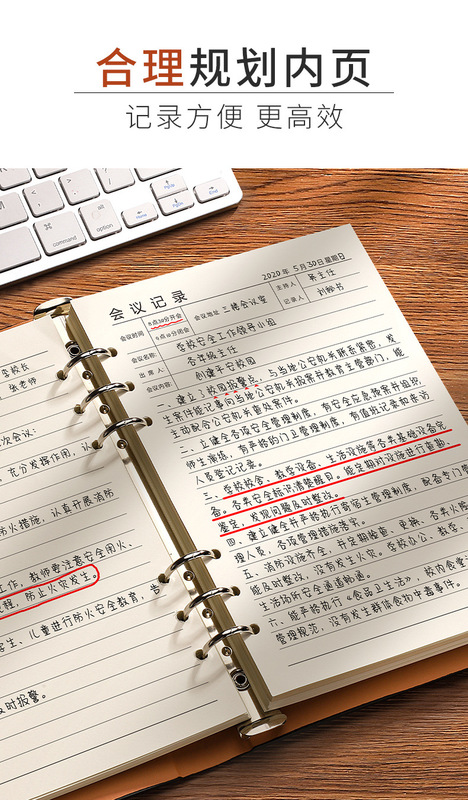 合理规划内页
记录方便 更高效
PgUp
PgDn
Home
End
shift
alt
option
command
会议记录
2020年5月30日星期日
会议时间
8点30分开会
9点10分闭会
会议地址
三楼会议室
主持人
吴主任
记录人
刘秘书
会议名称:
学校安全工作领导小组
出席人:
各年级主任
会议内容:
创建平安校园
一、建立了校园报警点,与当地公安机关联系紧密,发
生案件能记事向当地公安机关报案并教育主管部门,能
主动配合公安机关查处案件。
二、立健全各项安全管理制度,有安全应急预案并组织
师生演练,有严格的门卫管理制度,有值班记录和来访
人员登记记录。
三、学校校舍、教学设备、生活设施等各类基础设备完
备。各类安全标识清楚醒目。能定期对设施进行查勘、
鉴定,发现问题及时整改。
四、建立健全并严格执行寄宿生管理制度,配备专门
理人员,各项管理措施落实。
五、消防设施齐全,并定期检查、更换,各类火险
能及时整改,没有发生火灾。学校办公、教学、
生活场所安全通道畅通。
六、能严格执行《食品卫生法》,校内食堂
管理规范,没有发生群体食物中毒事件。
学校长
张老师
次会议:
充分发挥作用,认
防火措施,认真开展消防
工作,教师要注意安全用火、
程,防止火灾发生。
学生、儿童进行防火安全教育,学
及时报警。